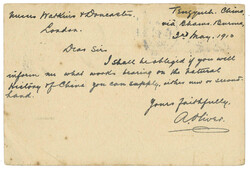 Messrs Watkins & Doncaster,
London.
Tengyueh. China,
via Bhamo. Burma,
2nd May, 1910
Dear Sir,
I shall be obliged if you will
inform me what works bearing on the natural
History of China you can supply, either new or second-
hand.
Yours faithfully,